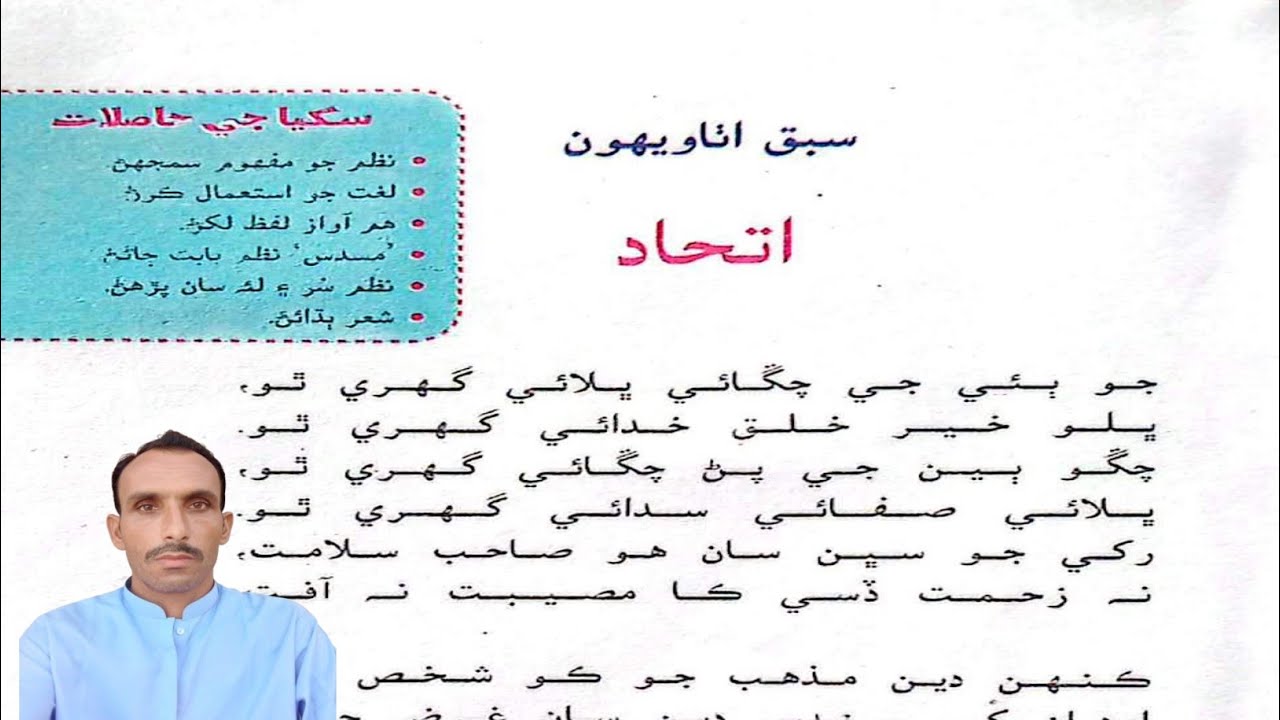 سبق اٺاويهون
اتحاد
سکيا جي حاصلات
• نظم جو مفهوم سمجهڻ
• لغت جو استعمال ڪرڻ
• هم آواز لفظ لکڻ.
• ’مسدس‘ نظم بابت ڄاڻڻ
• نظم سُر ۽ لئه سان پڙهڻ.
• شعر ٻڌائڻ.
جو ٻئي جي چڱائي ڀلائي گهري ٿو،
ڀلو خير خلق خدائي گهري ٿو.
چڱو ٻين جي پڻ چڱائي گهري ٿو،
ڀلائي صفائي سدائي گهري ٿو.
رکي جو سڀن سان هو صاحب سلامت،
نہ زحمت ڏسي ڪا مصيبت نہ آفت،
ڪنهن دين مذهب جو ڪو شخص